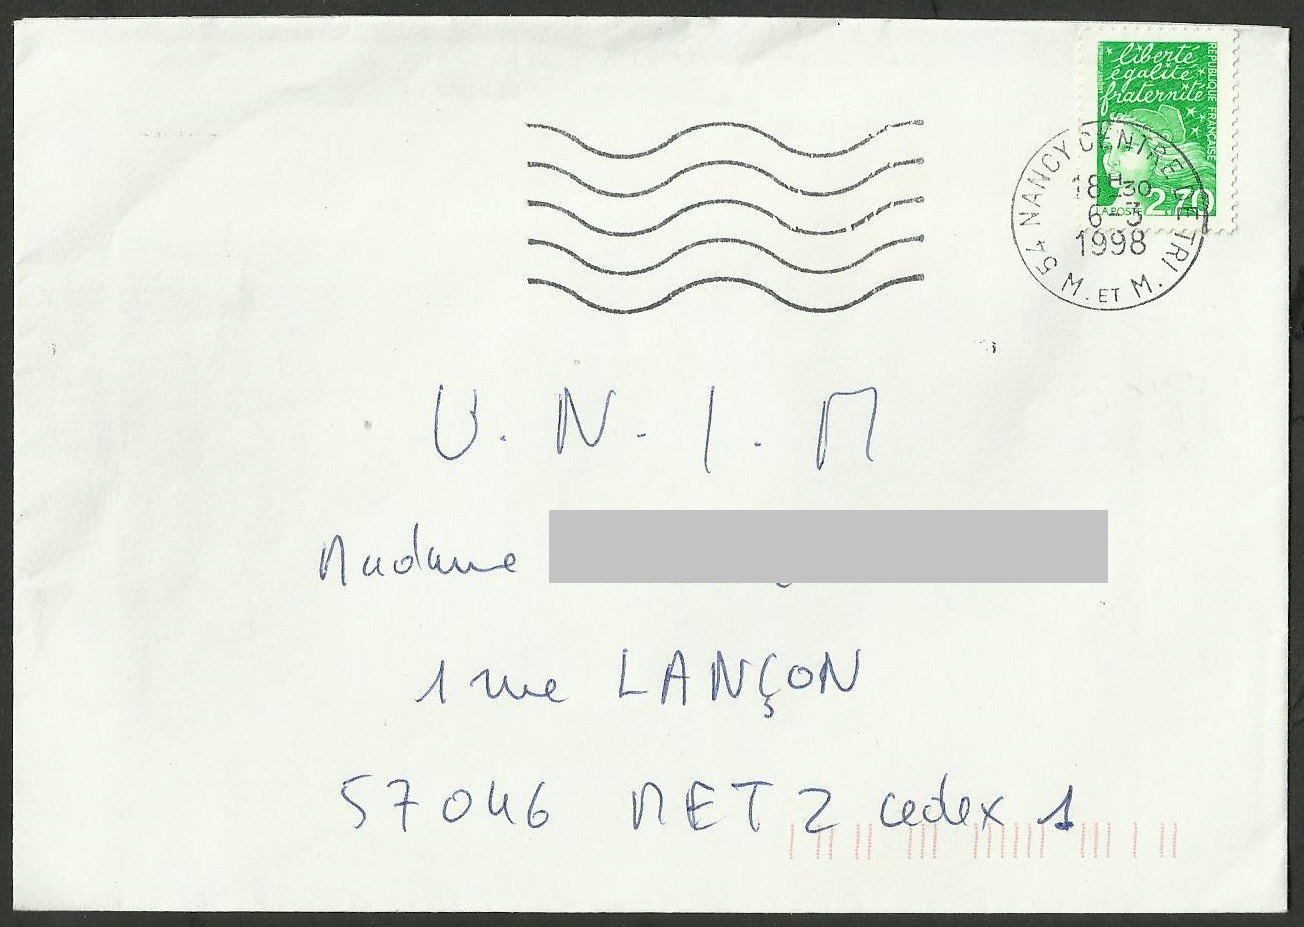 liberté
égalité
fraternité
REPUBLIQUE FRANÇAISE
LA POSTE
2,70
54 NANCY CENTRE DE TRI
18H30
6-3
1998
M. ET M.
U.N.I.M
Madame
1 rue LANÇON
57046 METZ cedex 1